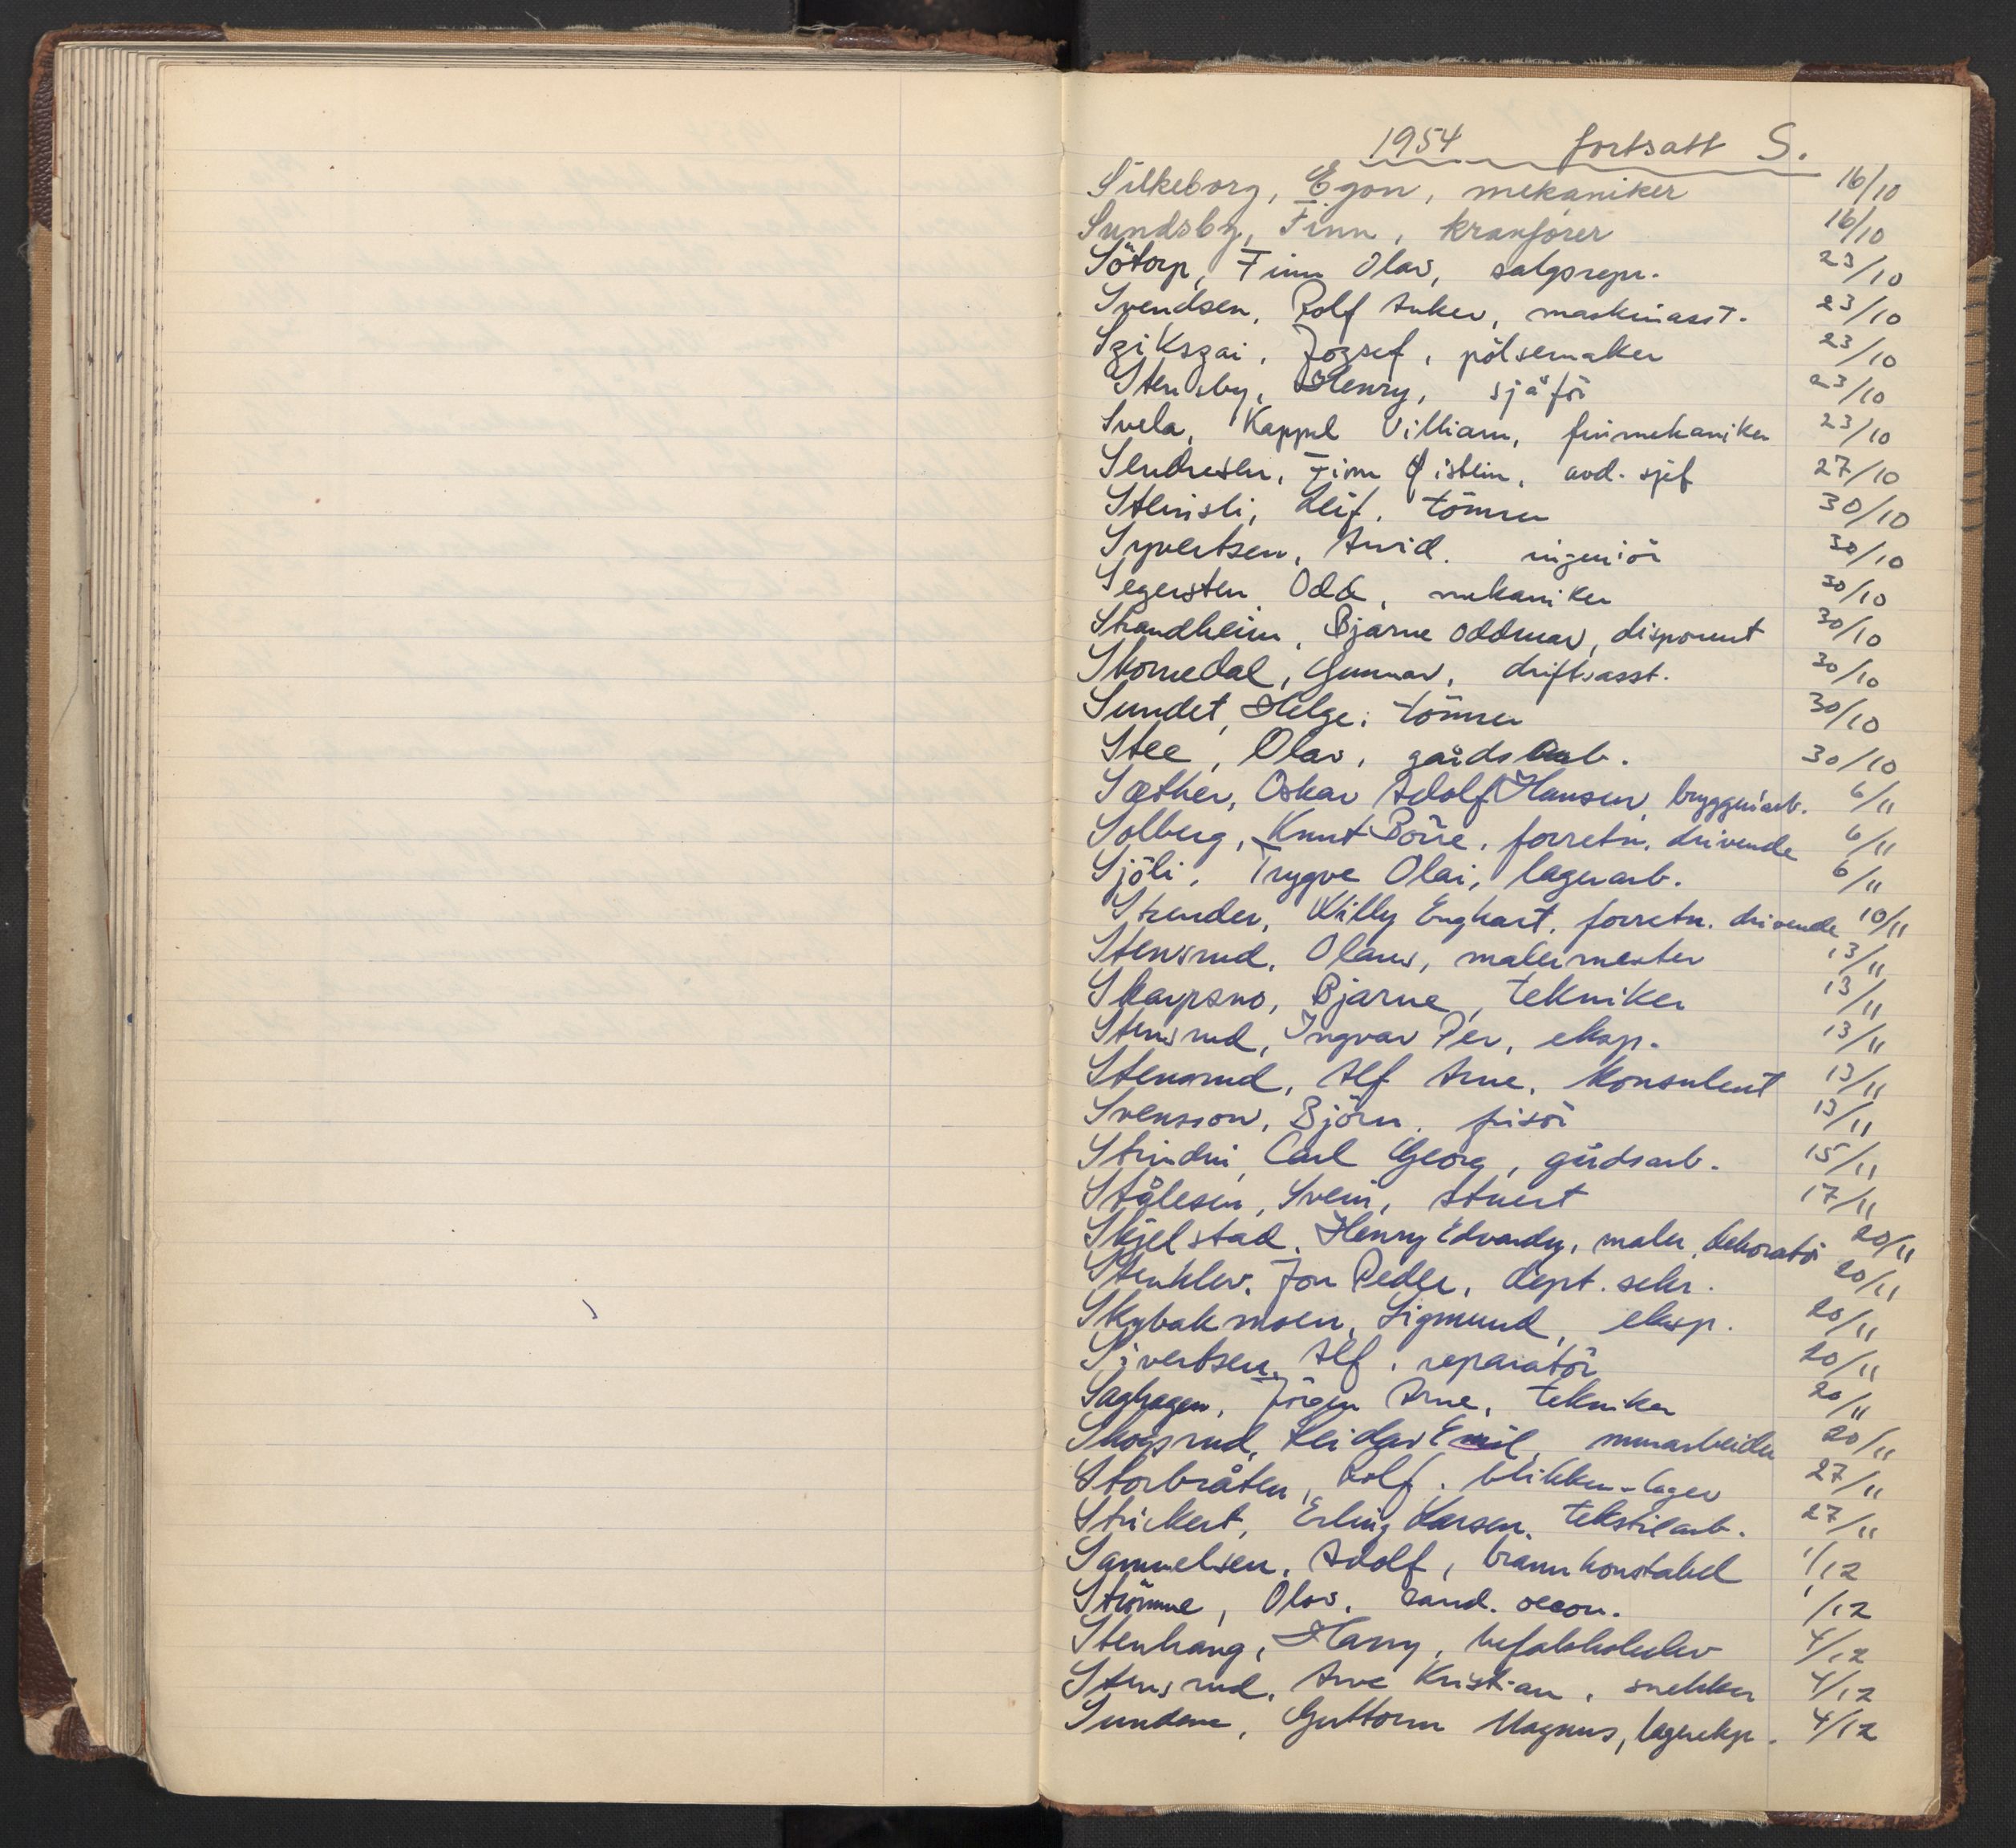 1954 fortsatt S.
Silkeborg, Egon, mekaniker 16/10
Sundsby, Finn, kranförer 16/10
Sötorp, Finn Olav, salgsrepr. 23/10
Svendsen, Rolf Anker, maskinasst. 23/10
Szikszai, Jozsef, pölsemaker 23/10
Stensby, Henry, sjåför 23/10
Svela, Kappel Villiam, finmekaniker 23/10
Sendresen, Finn Øistein, avd. sjef 27/10
Steinsli, Leif, tömrer 30/10
Syvertsen, Arvid. ingeniör 30/10
Segersten Odd, mekaniker 30/10
Strandheim, Bjarne Oddmar, disponent 30/10
Skomedal, Gunnar, driftsasst. 30/10
Sundet, Helge, tömrer 30/10
Stee, Olav, gårdsarb. 30/10
Sæther, Oskar Adolf Hansen, bryggeriarb. 6/11
Solberg, Knut Börre, forretn. drivende 6/11
Sjöli, Trygve Olai, lagerarb. 6/11
Strender, Willy Enghart, forretn. drivende 10/11
Stensrud, Olaus, malermester 13/11
Skarpsno, Bjarne, tekniker 13/11
Stensrud, Ingvar Per, eksp. 13/11
Stensrud, Alf Arne, konsulent 13/11
Svensson, Björn, frisör 13/11
Strindin, Carl Georg, gårdsarb. 15/11
Stålesen, Svein, stuert 17/11
Skjelstad, Henry Edvardy, maler, dekoratör 20/11
Stenklev, Jon Peder, dept. sekr. 20/11
Skybakmoen, Sigmund, eksp. 20/11
Sivertsen, Alf, reparatör 20/11
Saghagen, Jörgen Arne, tekniker 20/11
Skogsrud, Reidar Emil, murarbeider 20/11
Storbråten, Rolf, blikkenslager 27/11
Strickert, Erling Larsen, tekstilarb. 27/11
Samuelsen, Adolf, brannkonstabel 1/12
Strömme, Olav, cand. oecon. 1/12
Stenhaug, Harry, befalskoleelev 4/12
Stensrud, Arve Kristian, snekker 4/12
Sundene, Guttorm Magnus, lagereksp. 4/12